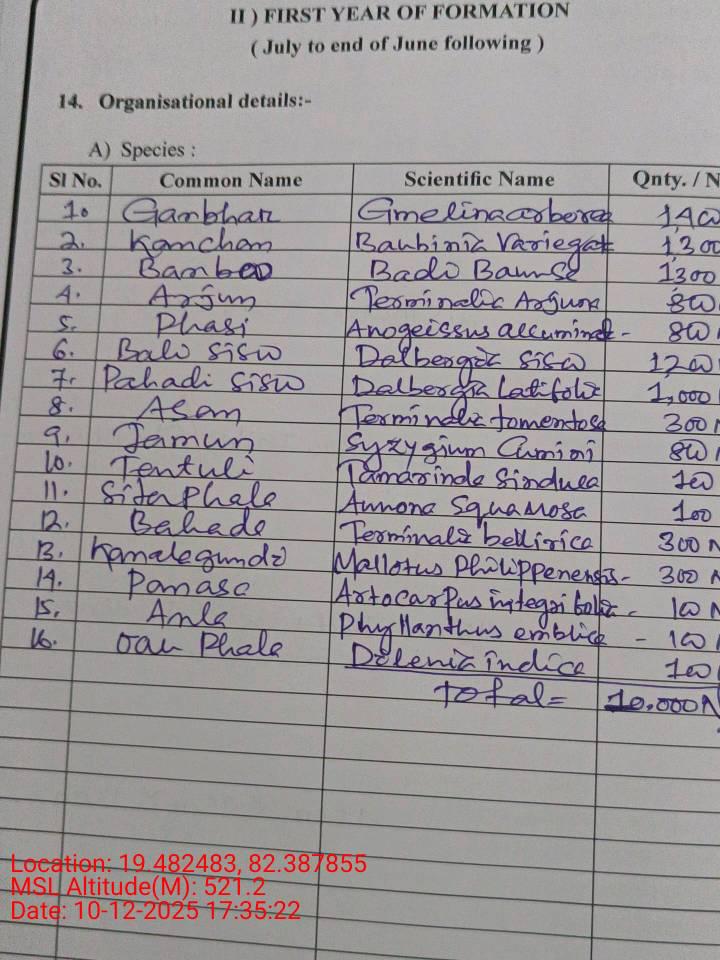 II ) FIRST YEAR OF FORMATION
( July to end of June following )
14. Organisational details:-
A) Species :
Sl No. Common Name Scientific Name Qnty. / N
1. Gambhar Gmelina arborea 1400
2. Kanchan Bauhinia Variegat 1,300
3. Bamboo 1300
4. Arjun Terminalia Arjuna 800
5. Dhasi Anogeissus accuminat - 800
6. Bali Sisu Dalbergia Sisu 1200
7. Pahadi Sisu Dalbergia Latifolia 1,000
8. Asan Terminalia tomentosa 300
9. Jamun Syzygium Cumini 800
10. Tentuli Tamarinda Sinduca 100
11. Sitaphala Annona Squamosa 100
12. Bahada Terminalia bellirica 300 N
13. Kamalagundi Mallotus Philippenensis - 300 N
14. Panasa Artocarpus integrifolia - 100
15. Anla Phyllanthus emblica - 100
16. Oau Phala Dilenia indica 100
total = 10,000 N
Location: 19.482483, 82.387855
MSL Altitude(M): 521.2
Date: 10-12-2025 17:35:22